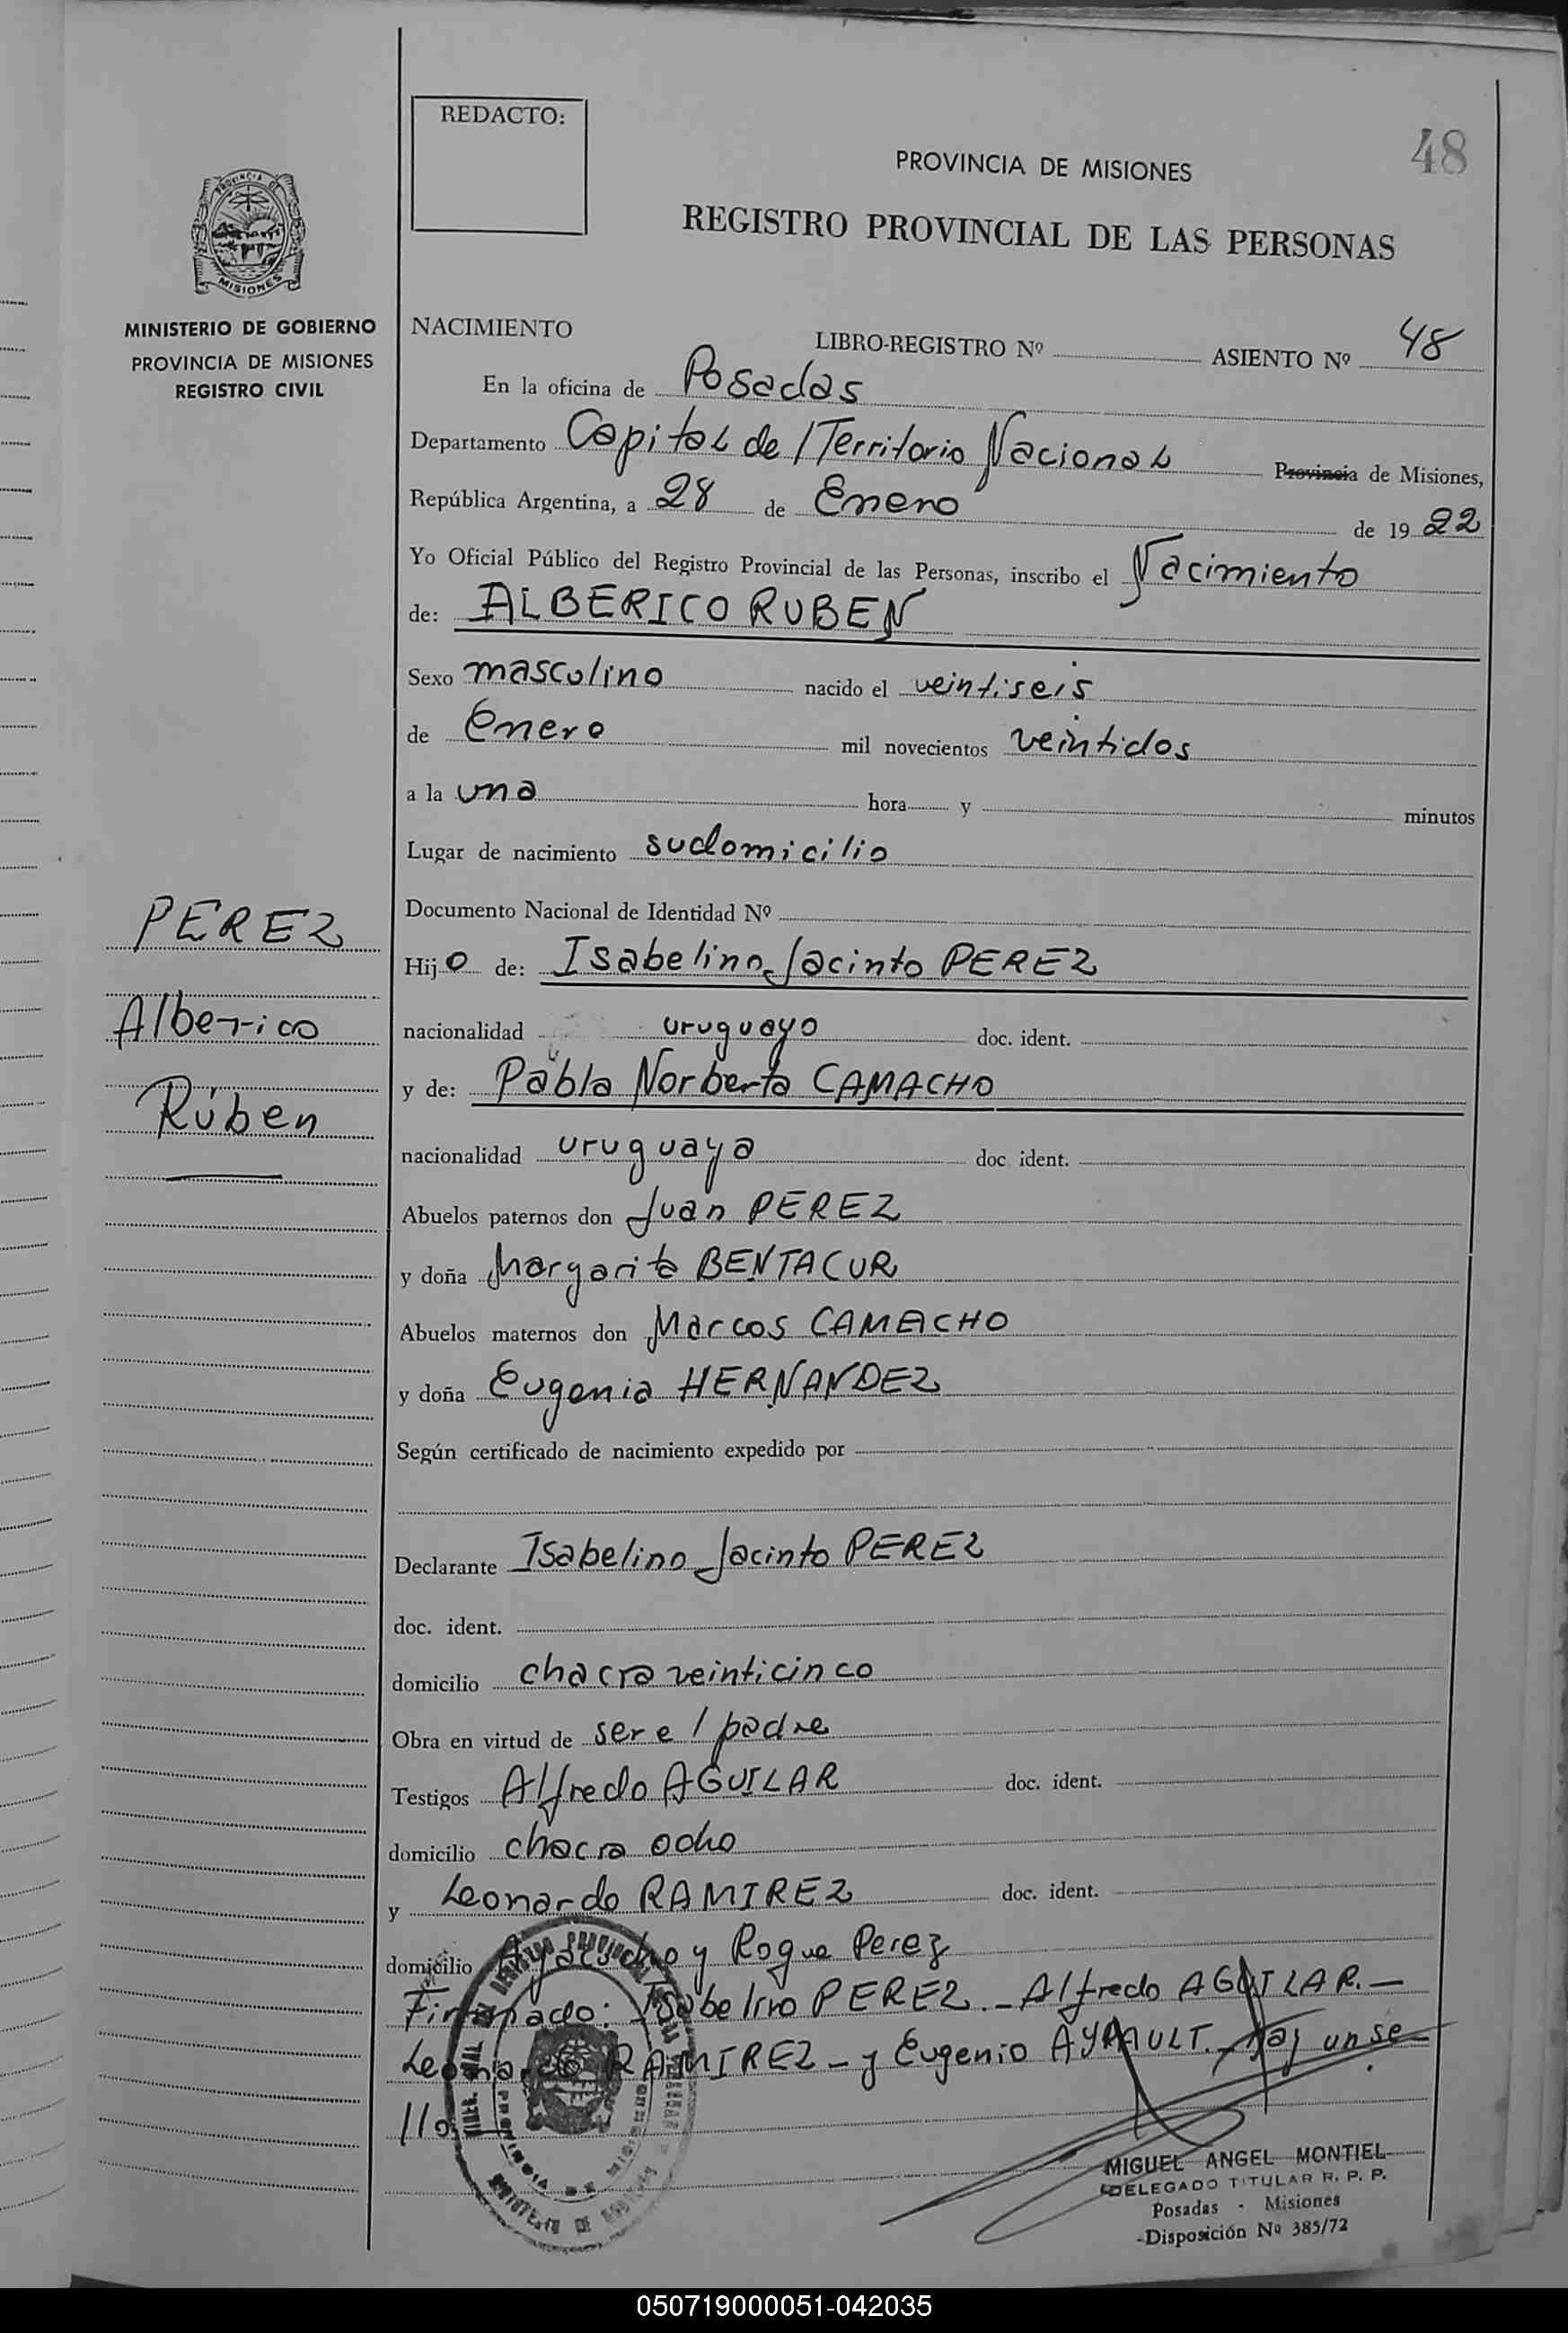 REDACTO:
48
PROVINCIA DE MISIONES
REGISTRO PROVINCIAL DE LAS PERSONAS
PROVINCIA DE
MISIONES
MINISTERIO DE GOBIERNO
PROVINCIA DE MISIONES
REGISTRO CIVIL
PEREZ
Alberico
Rúben
NACIMIENTO LIBRO-REGISTRO Nº ASIENTO Nº 48
En la oficina de Posadas
Departamento Capital del Territorio Nacional Provincia de Misiones,
República Argentina, a 28 de Enero de 1922
Yo Oficial Público del Registro Provincial de las Personas, inscribo el Nacimiento
de: ALBERICO RUBEN
Sexo masculino nacido el veintiseis
de Enero mil novecientos veintidos
a la una hora y minutos
Lugar de nacimiento su domicilio
Documento Nacional de Identidad Nº
Hijo de: Isabelino Jacinto PEREZ
nacionalidad uruguayo doc. ident.
y de: Pabla Norberta CAMACHO
nacionalidad uruguaya doc ident.
Abuelos paternos don Juan PEREZ
y doña Margarita BENTACUR
Abuelos maternos don Marcos CAMACHO
y doña Eugenia HERNANDEZ
Según certificado de nacimiento expedido por
Declarante Isabelino Jacinto PEREZ
doc. ident.
domicilio chacra veinticinco
Obra en virtud de ser el padre
Testigos Alfredo AGUILAR doc. ident.
domicilio chacra ocho
y Leonardo RAMIREZ doc. ident.
domicilio Ayacucho y Roque Perez
Firmado: Isabelino PEREZ.- Alfredo AGUILAR.-
Leonardo RAMIREZ - y Eugenio AYRAULT.- Hay un se
llo
MIGUEL ANGEL MONTIEL
DELEGADO TITULAR R. P. P.
Posadas - Misiones
-Disposición Nº 385/72
050719000051-042035